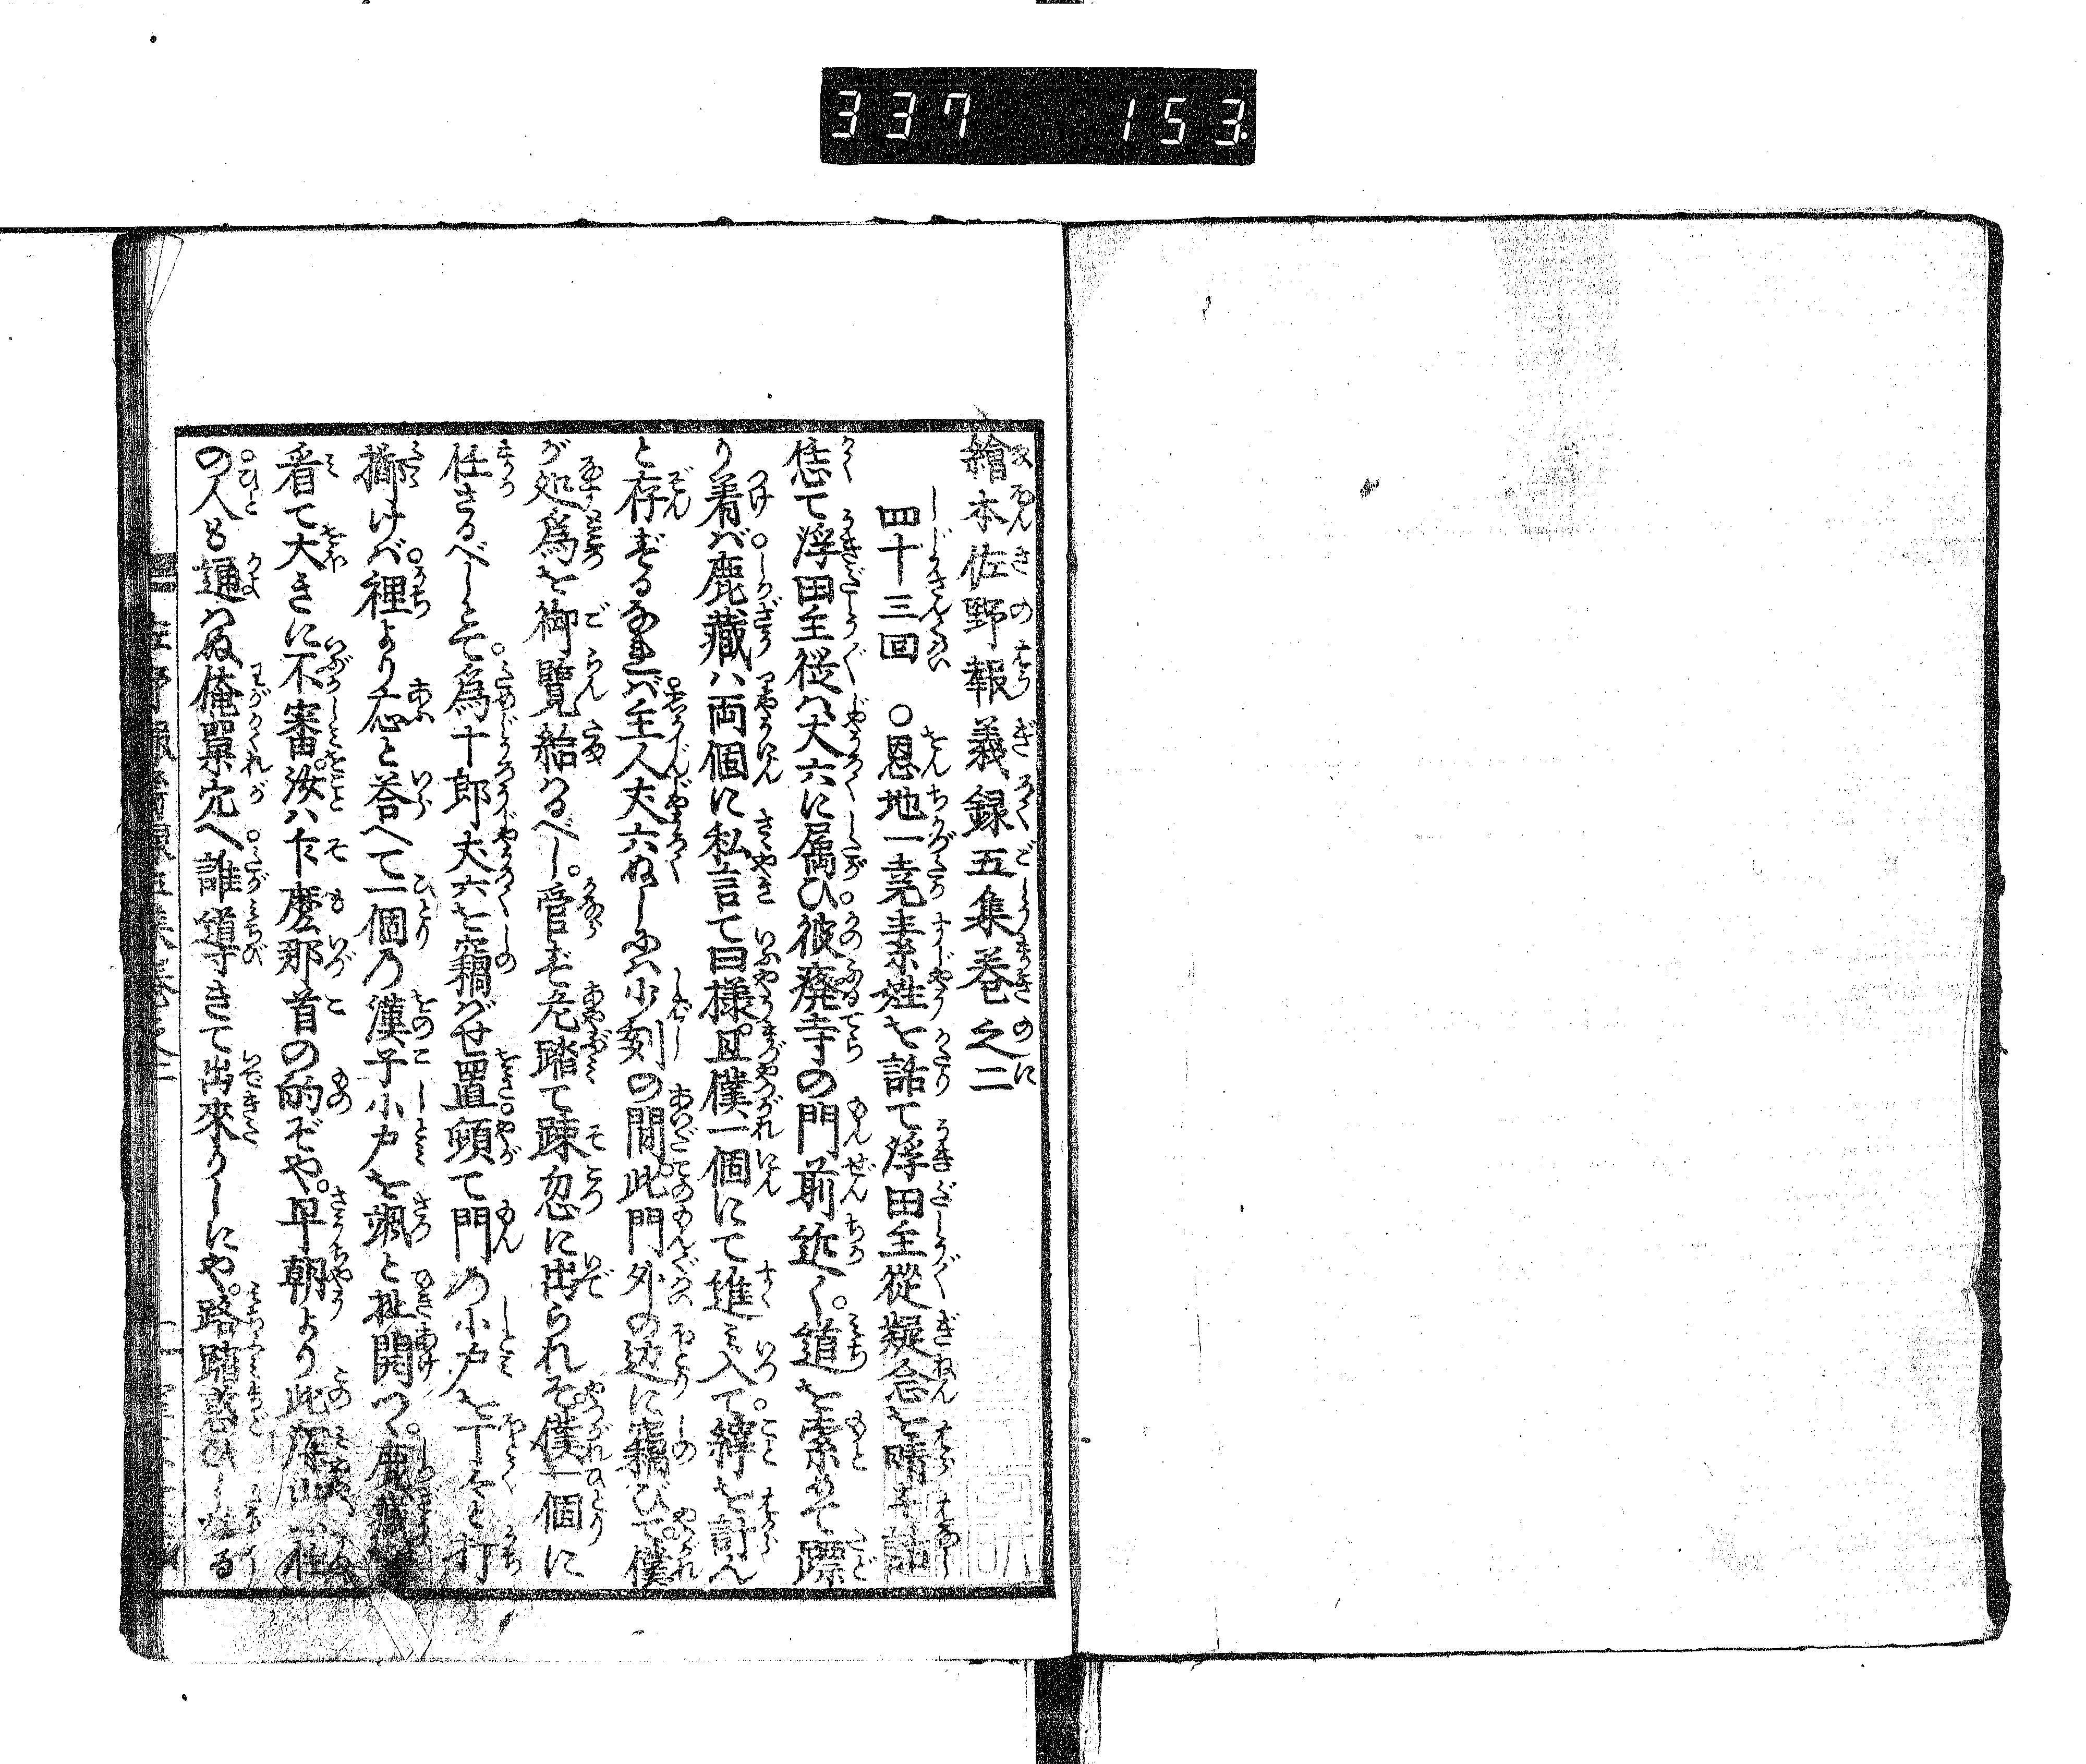 337 153
繪本佐野報義録五集巻之二
四十三回 ○恩地一堯素姓を話て浮田主從疑念を晴す話
恁て浮田主從ハ丈六に属ひ彼廢寺の門前近く。道を索めて踄
り着バ鹿藏ハ両個に私言て曰様。且僕一個にて進ミ入て縡を計ん
と存ずるなれバ主人丈六ぬしにハ少刻の間。此門外の辺に竊びて。僕
が処爲を御覽給はるべし。管ず危踏て踈忽に出られそ僕一個に
任さるべしとて。爲十郎丈六を竊ばせ置頓て門の小戸を丁々と打
擲けバ。裡より応と荅へて一個の漢子小戸を颯と扯開つ。鹿藏を
看て大きに不審。汝ハ乍麼那首の的ぞや。早朝より此深山へ往
の人も通ハぬ俺單穴へ誰導きて出來りしにや。路踏惑ひしなる